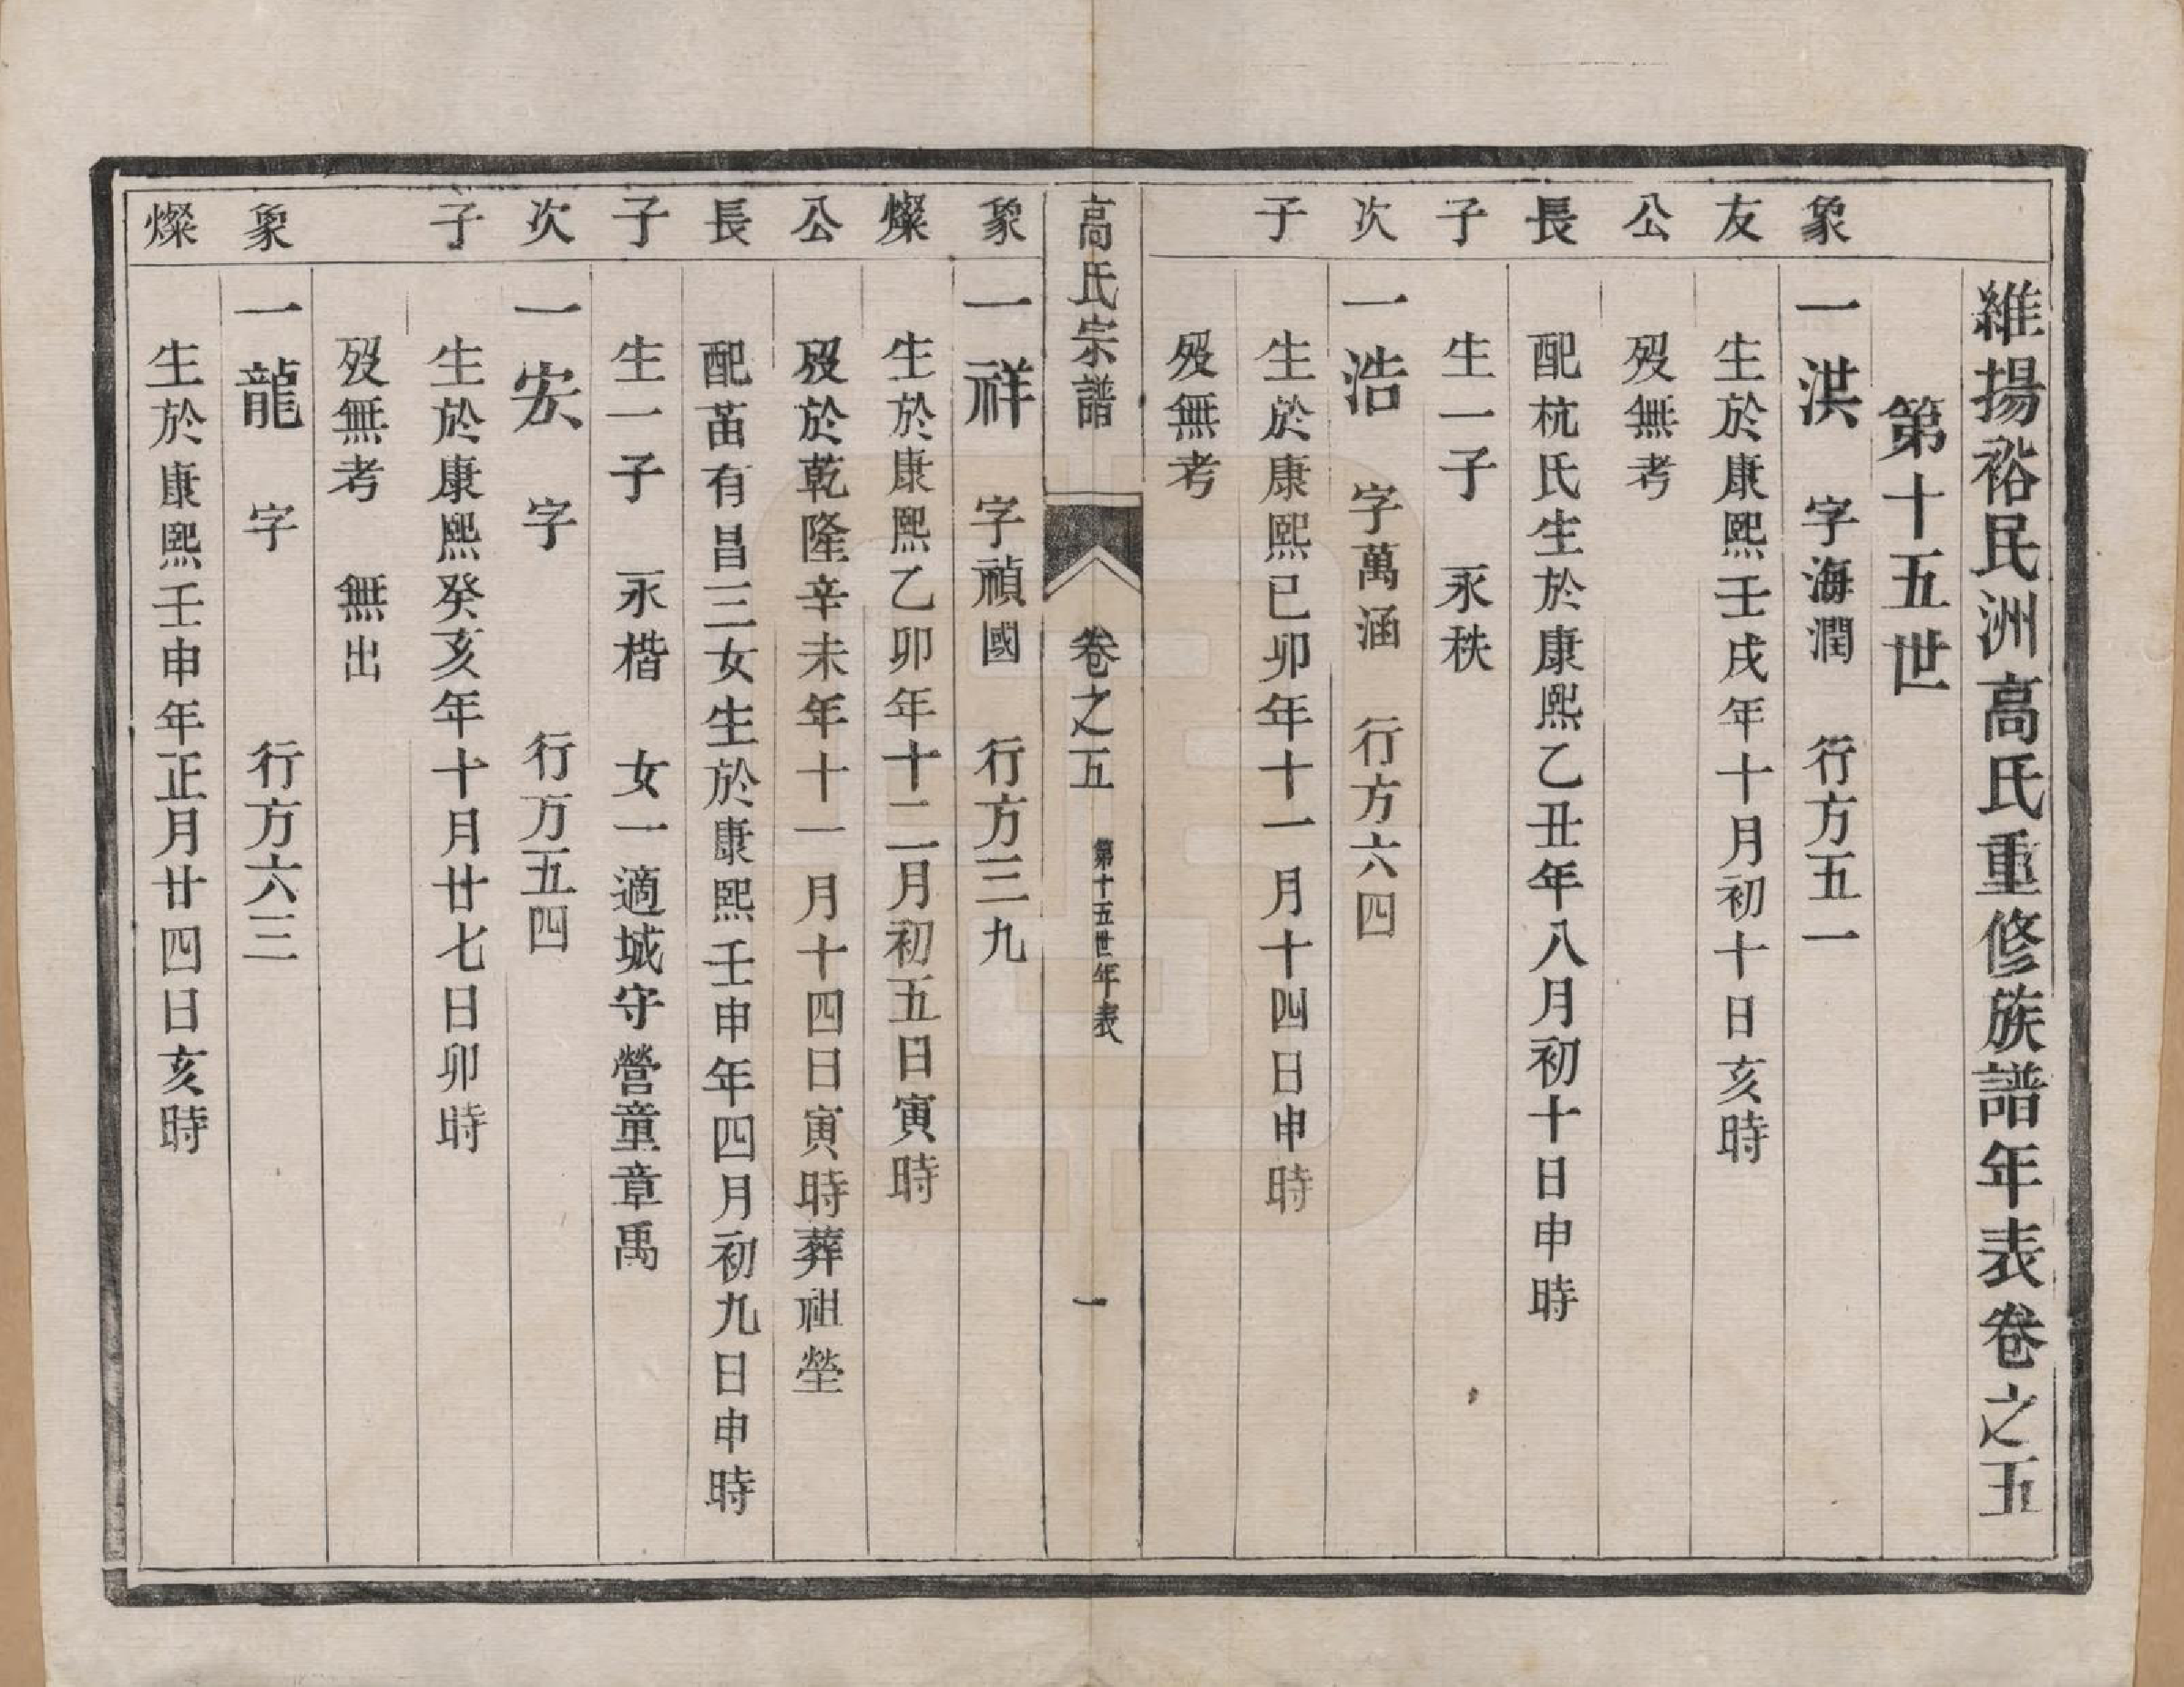 維揚裕民洲高氏重修族譜年表卷之五
第十五世
象友公長子
一洪 字海潤 行方五一
生於康熙壬戌年十月初十日亥時
歿無考
配杭氏生於康熙乙丑年八月初十日申時
生一子 永秩
次子
一浩 字萬涵 行方六四
生於康熙己卯年十一月十四日申時
歿無考
高氏宗譜 卷之五 第十五世年表 一
象燦公長子
一祥 字禎國 行方三九
生於康熙乙卯年十二月初五日寅時
歿於乾隆辛未年十一月十四日寅時葬祖塋
配茁有昌三女生於康熙壬申年四月初九日申時
生一子 永楷 女一適城守營童章禹
次子
一宏 字 行万五四
生於康熙癸亥年十月廿七日卯時
歿無考 無出
象燦
一龍 字 行方六三
生於康熙壬申年正月廿四日亥時